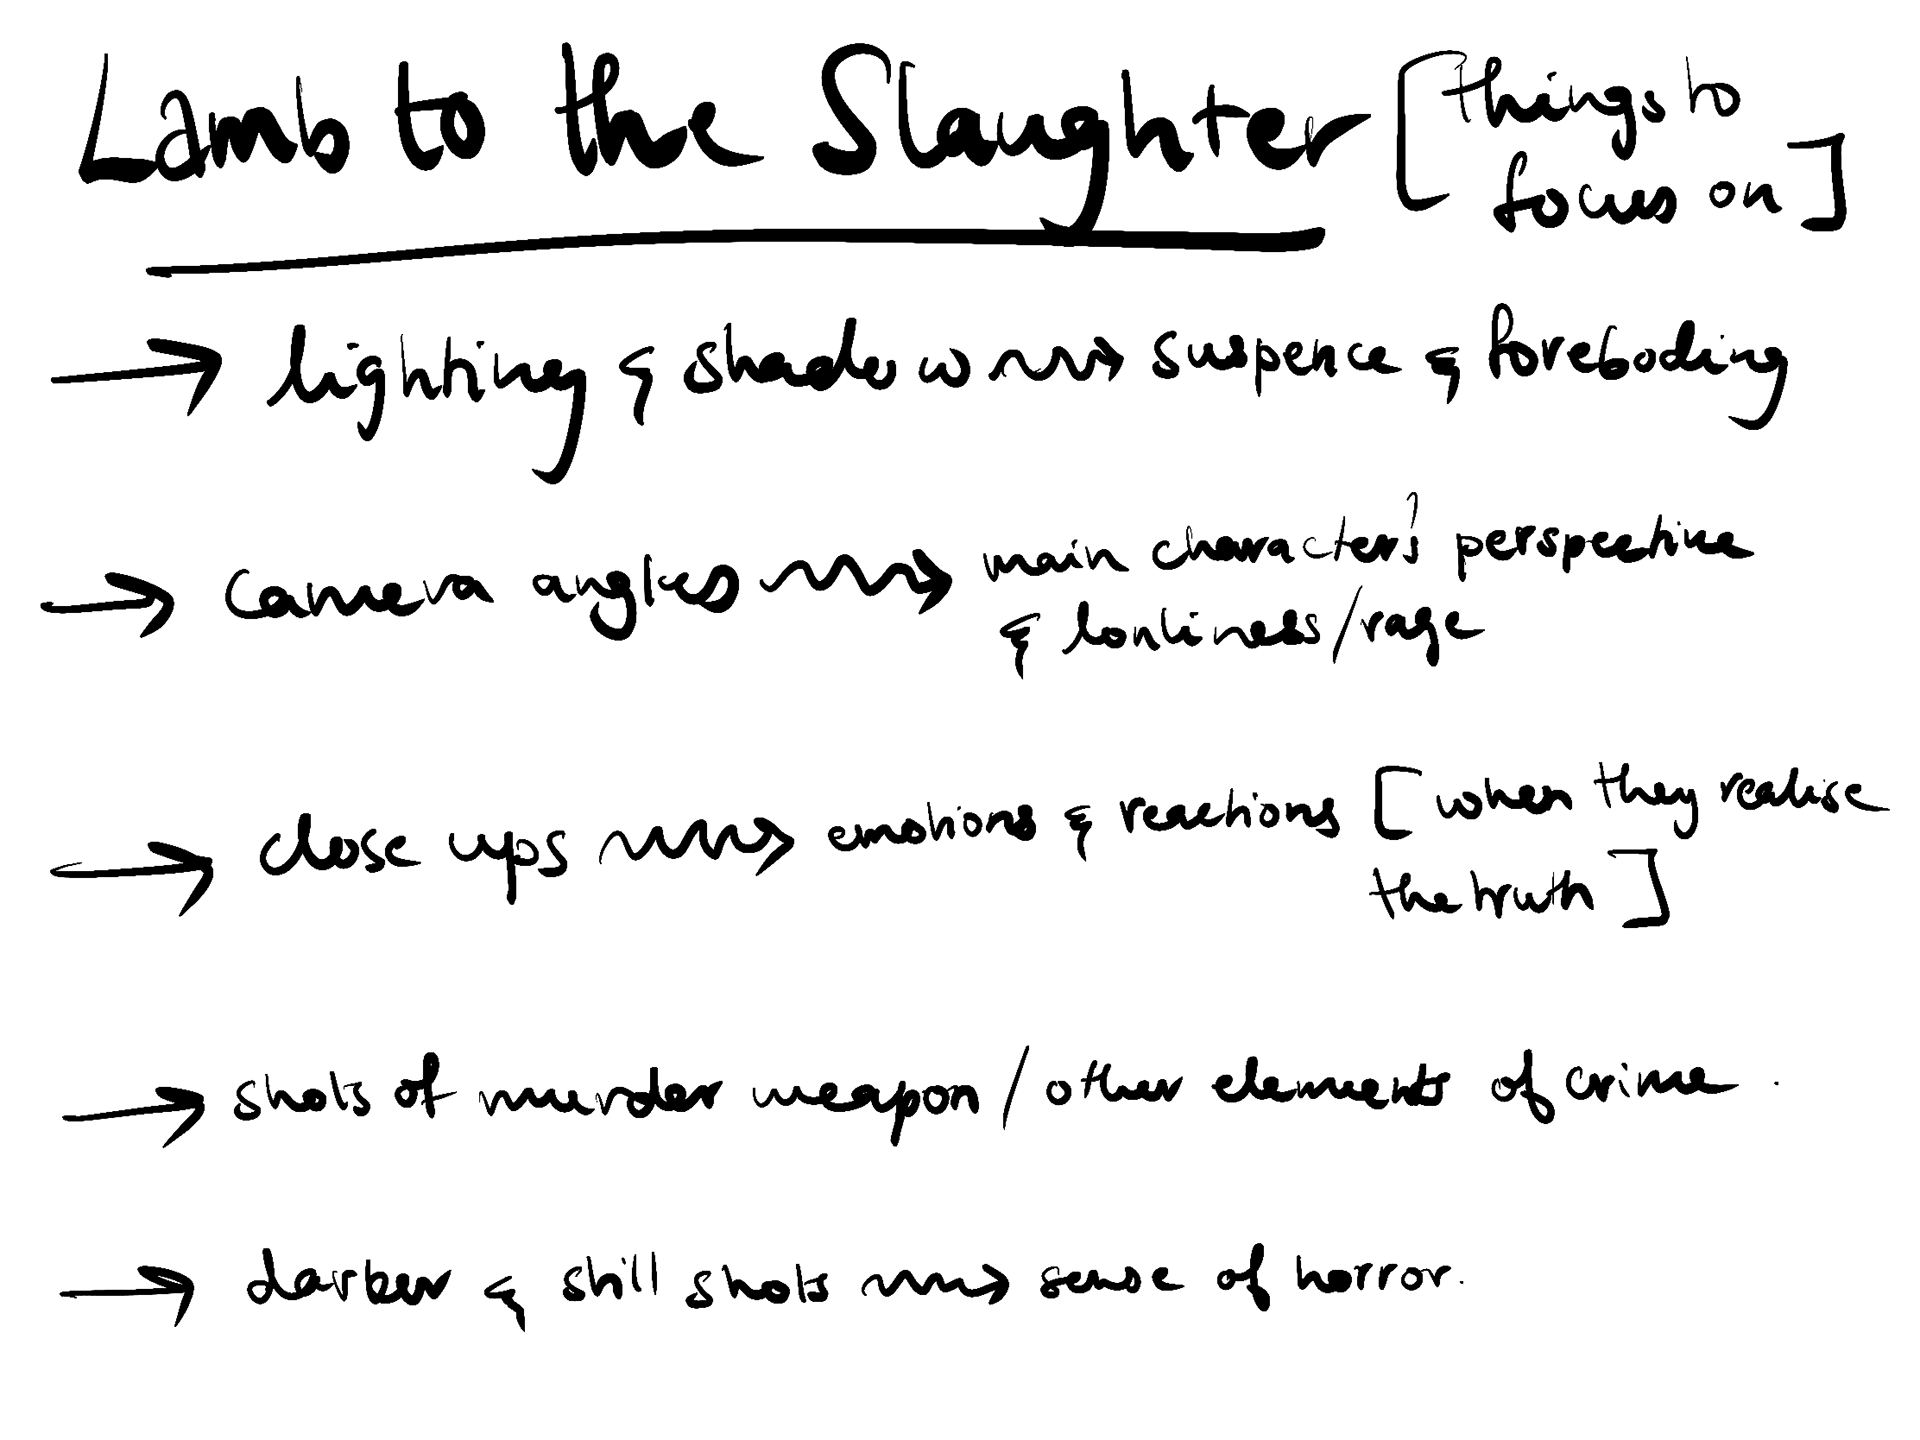 Lamb to the Slaughter [things to
focus on]
→ lighting & shadow → suspence & foreboding
→ camera angles → main character's perspective
& lonliness/rage
→ close ups → emotions & reactions [when they realise
the truth]
→ shots of murder weapon / other elements of crime.
→ darker & still shots → sense of horror.